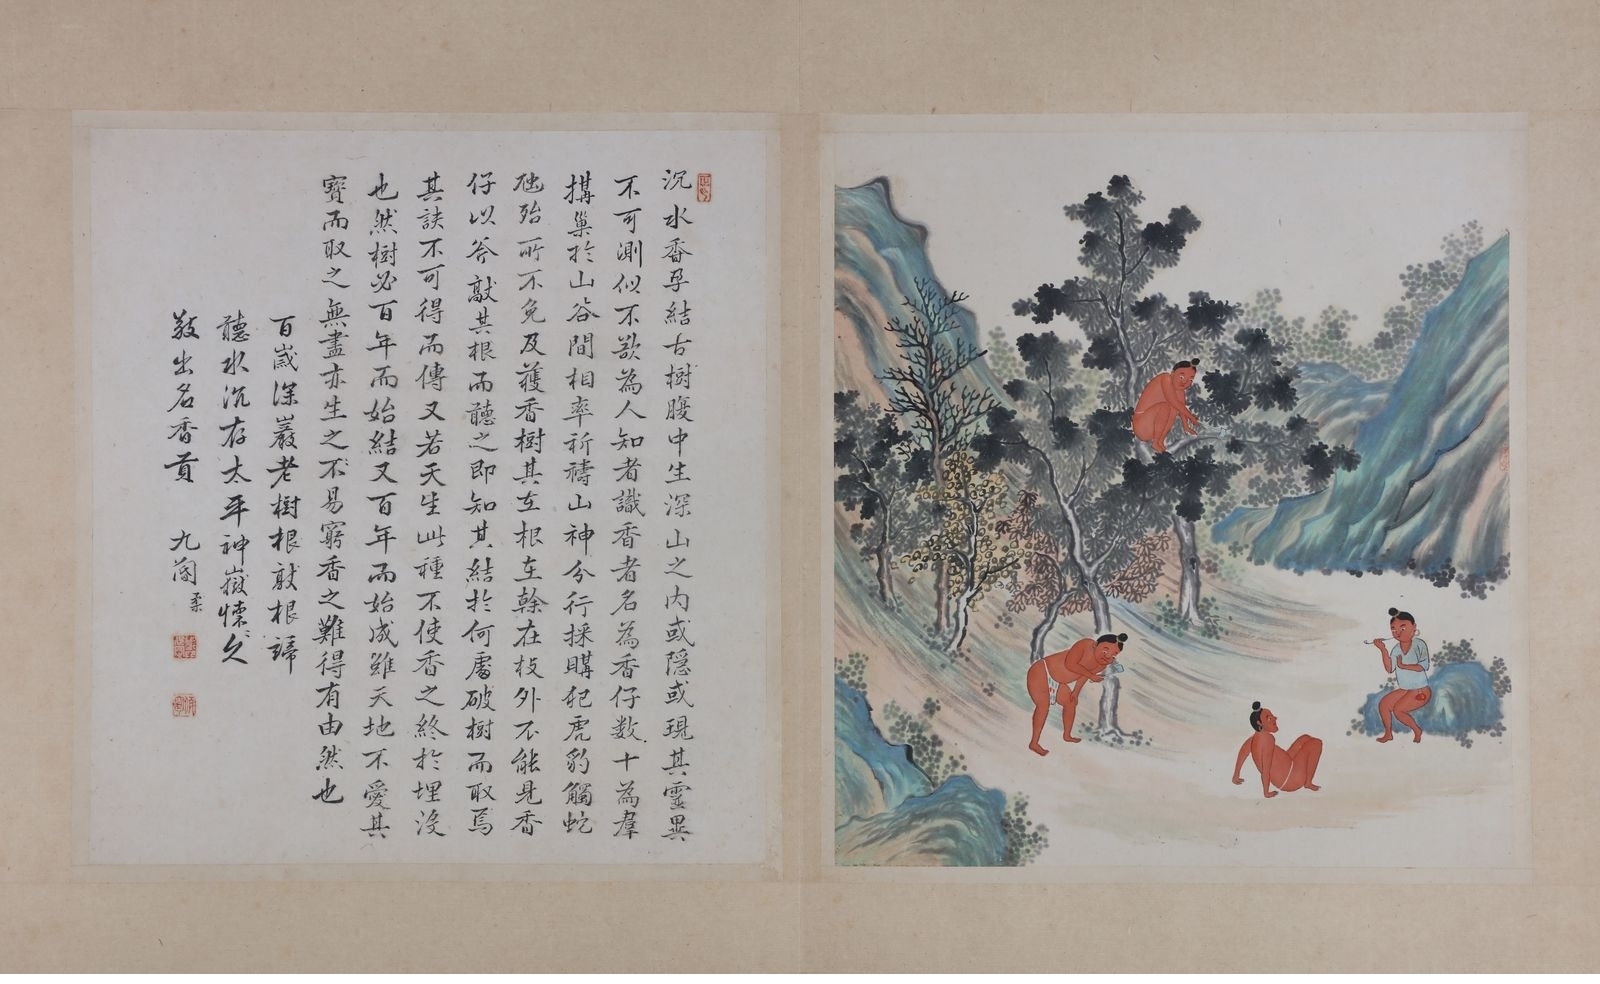 沉水香孕結古樹腹中生深山之內或隠或現其靈異
不可測似不欲為人知者識香者名為香仔數十為羣
搆巢於山谷間相率祈禱山神分行採購犯虎豹觸蛇
虺殆所不免及獲香樹其在根在榦在枝外不能見香
仔以斧敲其根而聽之即知其結於何處破樹而取焉
其訣不可得而傳又若天生此種不使香之終於埋沒
也然樹必百年而始結又百年而始成雖天地不愛其
寶而取之無盡亦生之不易窮香之難得有由然也
百歲深巖老樹根敲根諦
聽水沉存太平神嶽懷〻久
敬出名香貢
九蘭